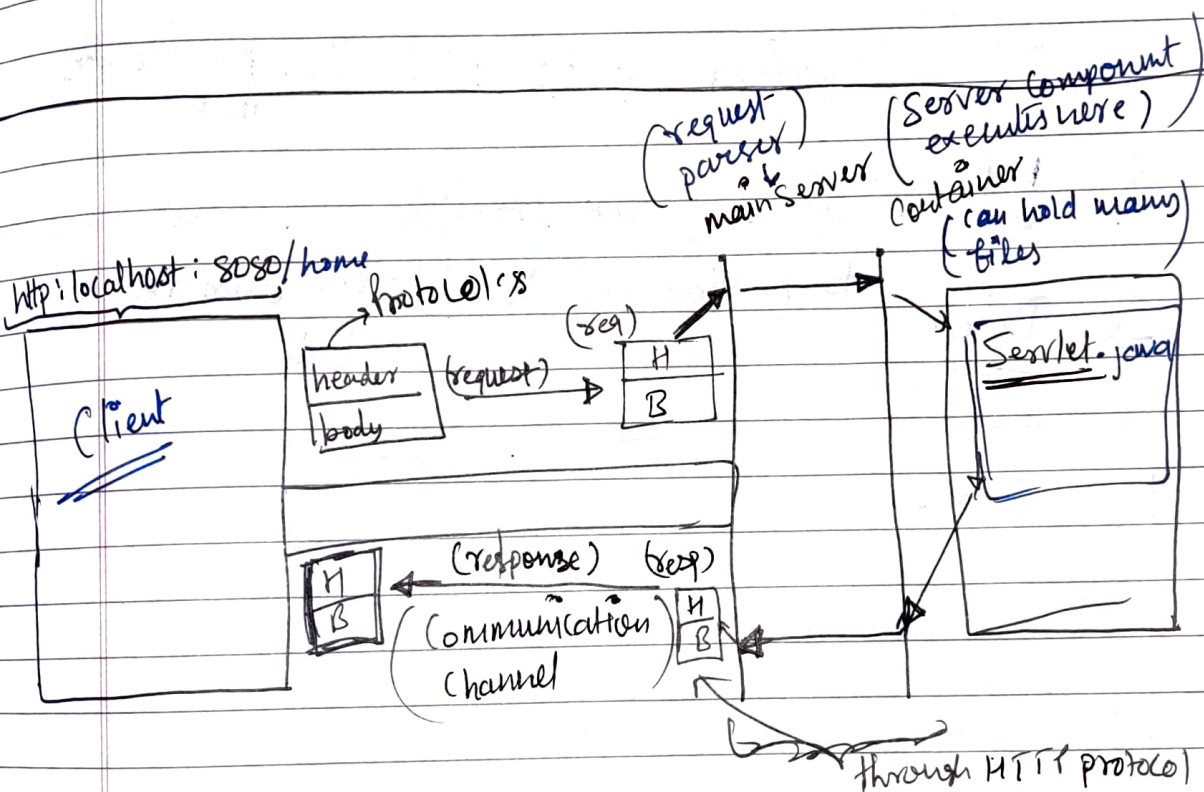 (request
parser)
main server
(Server component
executes here)
Container
(can hold many
files)
http:localhost:8080/home
Protocol:s
Client
header
body
(request)
(req)
H
B
Servlet.java
(response)
(resp)
H
B
(Communication
Channel)
H
B
through HTTP protocol